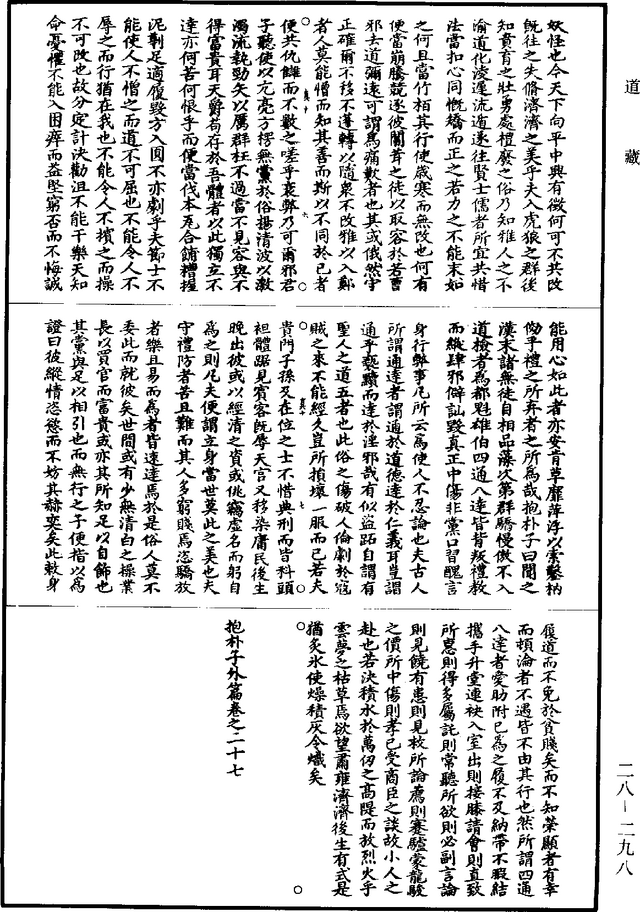 道藏
妖怪也今天下向平中興有徵何可不共改
旣往之失脩濟濟之美乎夫入虎狼之群後
知賁育之壯勇處禮廢之俗乃知雅人之不
渝道化淩遲流遁遂往賢士儒者所宜共惜
法當扣心同慨矯而正之若力之不能末如
之何且當竹柏其行使歲寒而無改也何有
便當崩騰競逐彼闒茸之徒以取容於若曹
邪去道彌遠可謂爲痛歎者也其或俄然守
正確爾不移不蓬轉以隨衆不改雅以入鄭
者人莫能憎而知其善而斯以不同於已者
便共仇讎而不數之嗟乎衰弊乃可爾邪君
子聽使以亢亮方楞無黨於俗揚清波以激
濁流執勁矢以厲群枉不過當不見容與不
得富貴耳天爵苟存於吾體者以此獨立不
達亦何苦何恨乎而便當伐本瓦合餔糟握
泥剿足適履毀方入圓不亦劇乎夫節士不
能使人不憎之而道不可屈也不能令人不
辱之而行猶在我也不能令人不擯之而操
不可改也故分定計決勸沮不能干樂天知
命憂懼不能入困瘁而益堅窮否而不悔誠
能用心如此者亦安肯草靡萍浮以索鑿枘
俲乎禮之所弃者之所爲哉抱朴子曰聞之
漢末諸無徒自相品藻次第群驕慢傲不入
道檢者爲都魁雄伯四通八達皆背叛禮教
而縱肆邪僻訕毀真正中傷非黨口習醜言
身行弊事凡所云爲使人不忍論也夫古人
所謂通達者謂通於道德達於仁義耳豈謂
通乎褻黷而達於淫邪哉有似盜跖自謂有
聖人之道五者也此俗之傷破人倫劇於寇
賊之來不能經久豈所損壞一服而已若夫
貴門子孫及在位之士不惜典刑而皆科頭
袒體踞見賓客旣辱天官又移染庸民後生
晚出彼或以經清之資或佻竊虛名而躬自
爲之則凡夫便謂立身當世莫此之美也夫
守禮防者苦且難而其人多窮賤焉恣驕放
者樂且易而爲者皆速達焉於是俗人莫不
委此而就彼矣世間或有少無清白之操業
長以買官而富貴或亦其所知足以自飾也
其黨與足以相引也而無行之子便指以爲
證曰彼縱情恣慾而不妨其赫奕矣此敕身
履道而不免於貧賤矣而不知榮顯者有幸
而頓淪者不遇皆不由其行也然所謂四通
八達者愛助附已爲之履不及納帶不暇結
攜手升堂連袂入室出則接膝請會則直致
所惠則得多屬託則常聽所欲則必副言論
則見饒有患則見救所論薦則蹇驢蒙龍駿
之價所中傷則孝已受商臣之談故小人之
赴也若決積水於萬仞之高隄而放烈火乎
雲夢之枯草焉欲望肅雍濟濟後生有式是
猶炙氷使燥積灰令熾矣
抱朴子外篇卷之二十七
二八—二九八